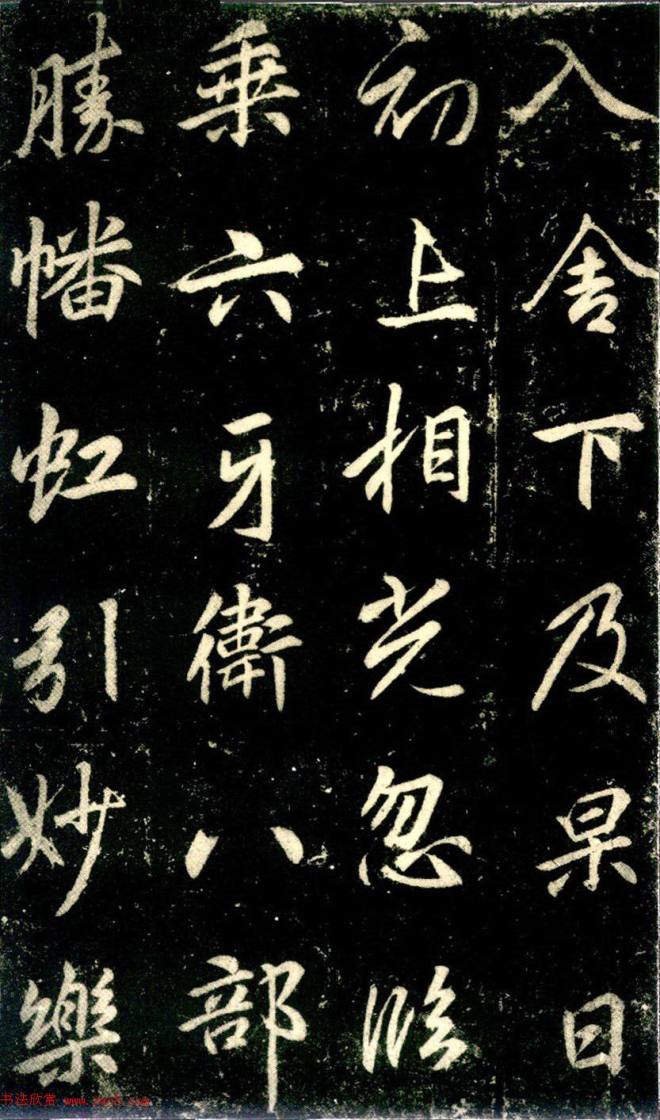 入舍下及杲日
初上相光忽臨
乘六牙衛八部
勝幡虹引妙樂
书法欣赏